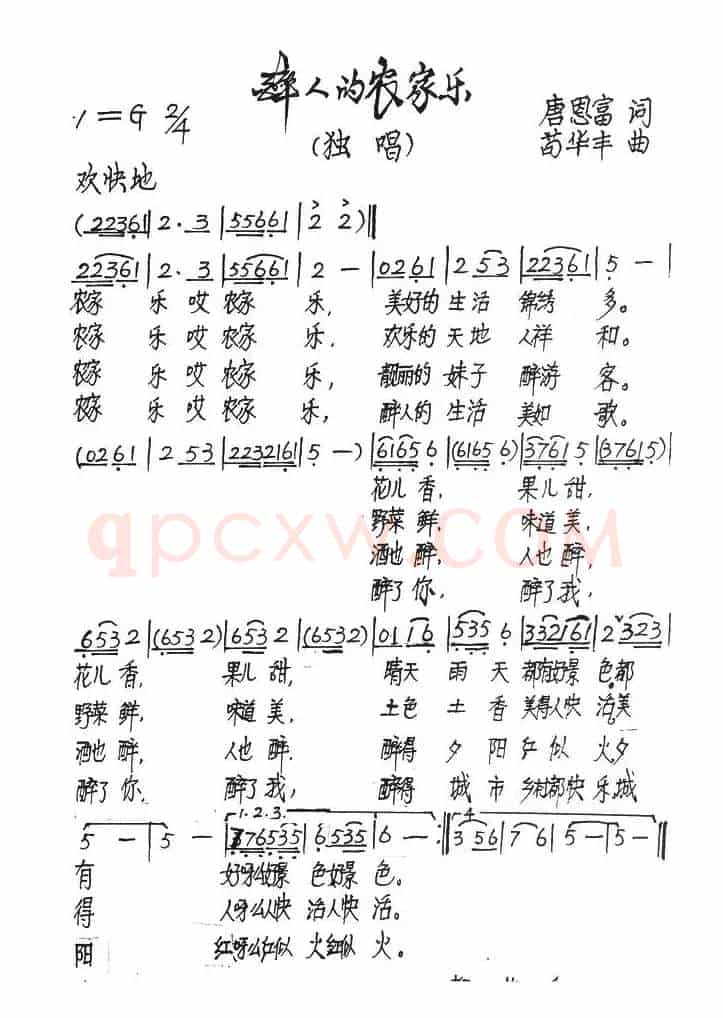 醉人的农家乐
1=G 2/4
(独唱)
唐恩富 词
苟华丰 曲
欢快地
(22361|2·3|55661|2 2)‖
22361|2·3|55661|2 —|0261|2 53|22361|5 —|
农家 乐哎农家 乐, 美好的生活 锦绣 多。
农家 乐哎农家 乐, 欢乐的天地 人祥 和。
农家 乐哎农家 乐, 靓丽的妹子 醉游 客。
农家 乐哎农家 乐, 醉人的生活 美如 歌。
(0261|2 53|2232161|5 —)|6165 6|(6165 6)|3761 5|(3761 5)|
花儿香, 果儿甜,
野菜鲜, 味道美,
酒也醉, 人也醉,
醉了你, 醉了我,
6532|(6532)|653 2|(653 2)|01 1 6|535 6|332161|2 323|
花儿香, 果儿甜, 晴天 雨天 都有好景 色,都
野菜鲜, 味道美, 土色 土香 美得人快 活,美
酒也醉, 人也醉. 醉得 夕阳 红似 火,夕
醉了你. 醉了我, 醉得 城市 乡村都快乐,城
5 —|5 —|
1.2.3.
76535|6 535|6 —:‖
4
3 56|7 6|5 —|5 —‖
有 好呀么好景 色好景 色。
得 人呀么人快 活人快 活。
阳 红呀么红似 火红似 火。
qpcxw.COM